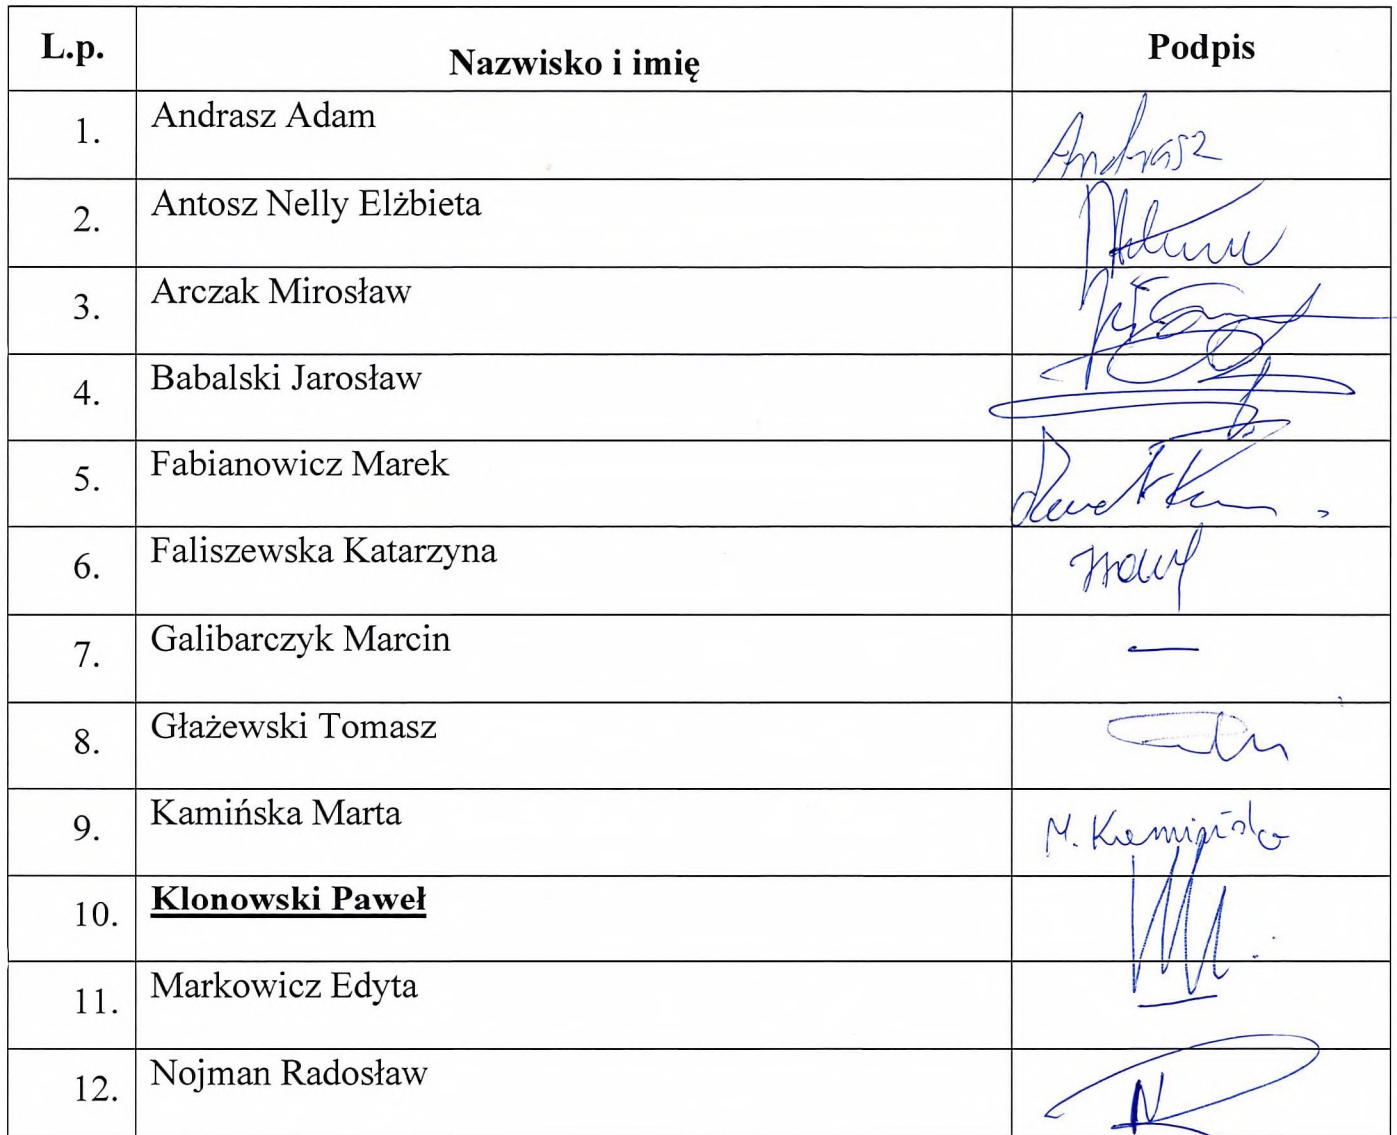 L.p. Nazwisko i imię Podpis
1. Andrasz Adam Andrasz
2. Antosz Nelly Elżbieta
3. Arczak Mirosław
4. Babalski Jarosław
5. Fabianowicz Marek
6. Faliszewska Katarzyna
7. Galibarczyk Marcin —
8. Głażewski Tomasz
9. Kamińska Marta M. Kamińska
10. Klonowski Paweł
11. Markowicz Edyta
12. Nojman Radosław